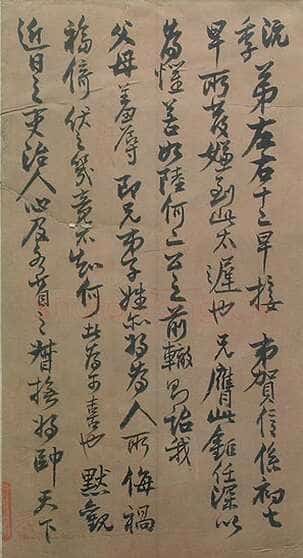 沅季弟左右十二早接弟賀信係初七
早所發嫌到此太遲也兄膺此鉅任深以
為懼若如陸何二公之前轍則詒我
父母羞辱即兄弟子姪亦將為人所侮禍
福倚伏之幾竟不知何者為可喜也默觀
近日之吏治人心及各省之督撫將帥天下